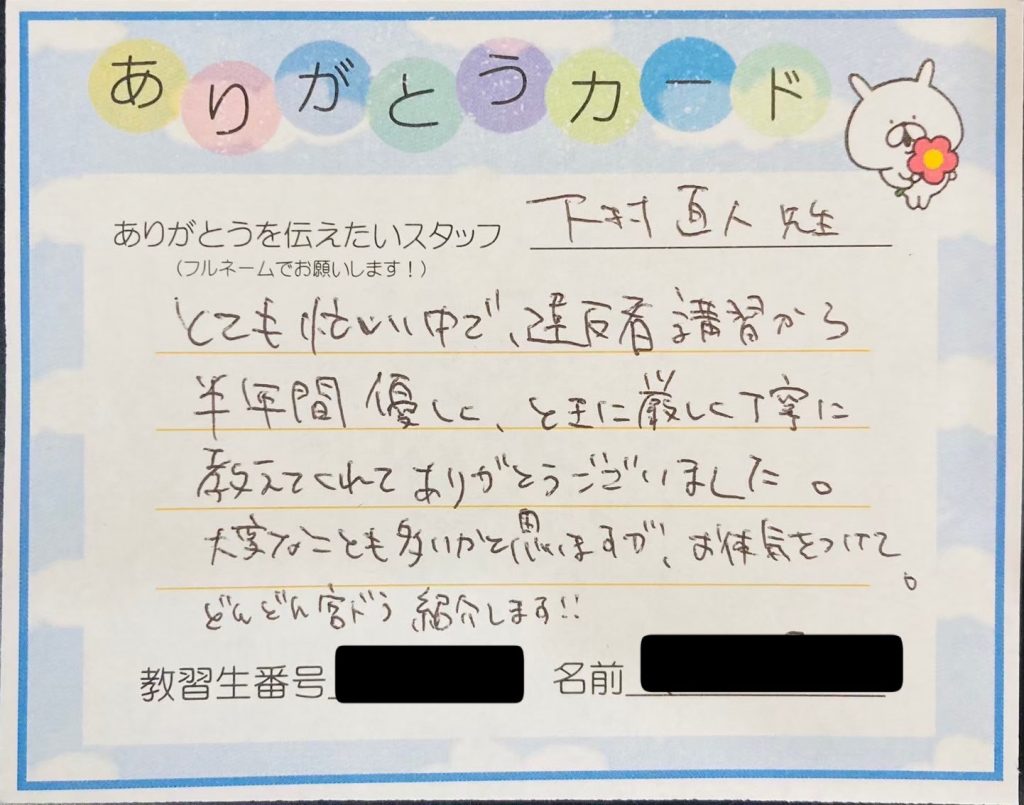 ありがとうカード
ありがとうを伝えたいスタッフ 下村 直人 先生
(フルネームでお願いします！)
とても忙しい中で、違反者講習から
半年間 優しく、ときに厳しく丁寧に
教えてくれてありがとうございました。
大変なことも多いかと思いますが、お体気をつけて。
どんどん宮ドラ 紹介します!!
教習生番号
名前